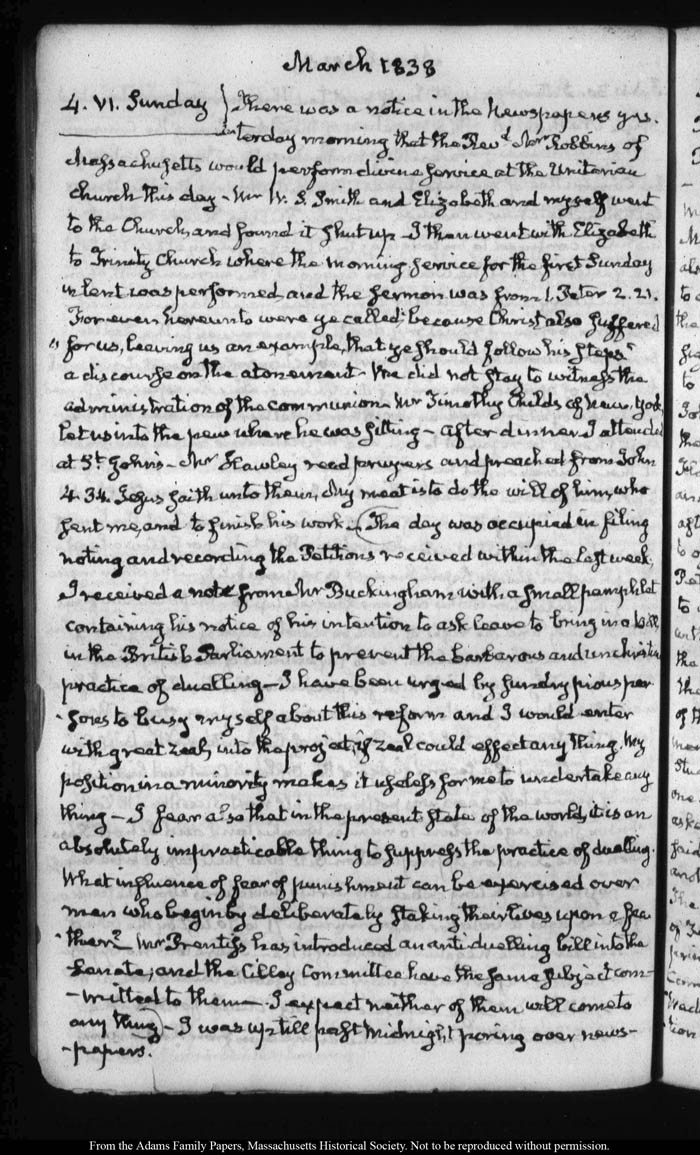 March 1838
4. VI. Sunday } There was a notice in the Newspapers yes-
terday morning that the Revd. Mr Robbins of
Massachusetts would perform divine service at the Unitarian
Church this day - Mr W. S. Smith and Elizabeth and myself went
to the Church, and found it shut up - I then went with Elizabeth
to Trinity Church where the morning service for the first Sunday
in lent was performed, and the sermon was from 1. Peter 2. 21.
For even hereunto were ye called: because Christ also suffered
" for us, leaving us an example, that ye should follow his steps"
a discourse on the atonement - We did not stay to witness the
administration of the communion. Mr Timothy Childs of New-York
let us into the pew where he was sitting - after dinner I attended
at St. John's - Mr Hawley read prayers and preached from John
4. 34. Jesus saith unto them, My meat is to do the will of him, who
sent me, and to finish his work. (The day was occupied in filing
noting and recording the Petitions received within the last week.
I received a note from Mr Buckingham with a small pamphlet
containing his notice of his intention to ask leave to bring in a bill
in the British Parliament to prevent the barbarous and unchristian
practice of duelling - I have been urged by sundry pious per-
-sons to busy myself about this reform and I would enter
with great zeal, into the project, if zeal could effect any thing. My
position in a minority makes it useless for me to undertake any
thing - I fear also that in the present state of the world, it is an
absolutely impracticable thing to suppress the practice of duelling.
What influence of fear of punishment can be exercised over
men who begin by deliberately staking their lives upon a fea-
-ther? Mr Prentiss has introduced an anti duelling bill into the
Senate; and the Cilley Committee have the same subject com-
-mitted to them. I expect neither of them will come to
any thing) - I was up till past midnight poring over news-
-papers.
From the Adams Family Papers, Massachusetts Historical Society. Not to be reproduced without permission.